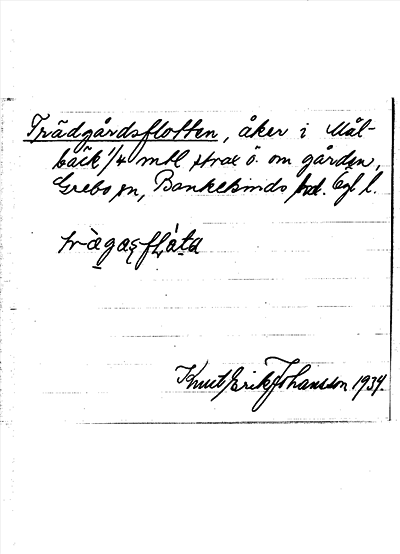 Trädgårdsflotten, åker i Mål-
bäck 1/4 mtl strax ö. om gården,
Grebo sn, Bankekinds hd. Ög l.
trägasflåta
Knut Erik Johansson 1934.